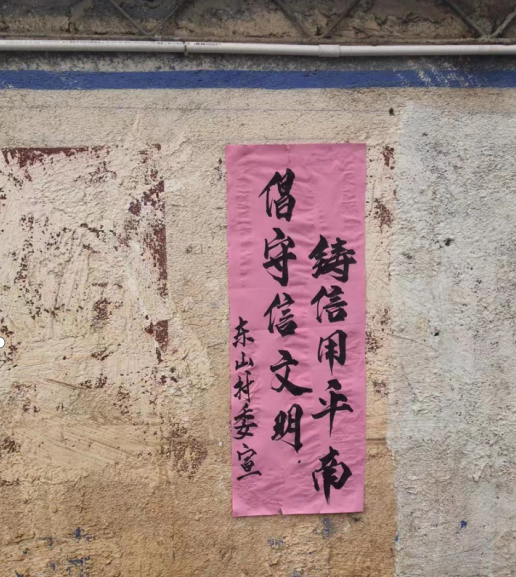 铸信用平南
倡守信文明
东山村委宣